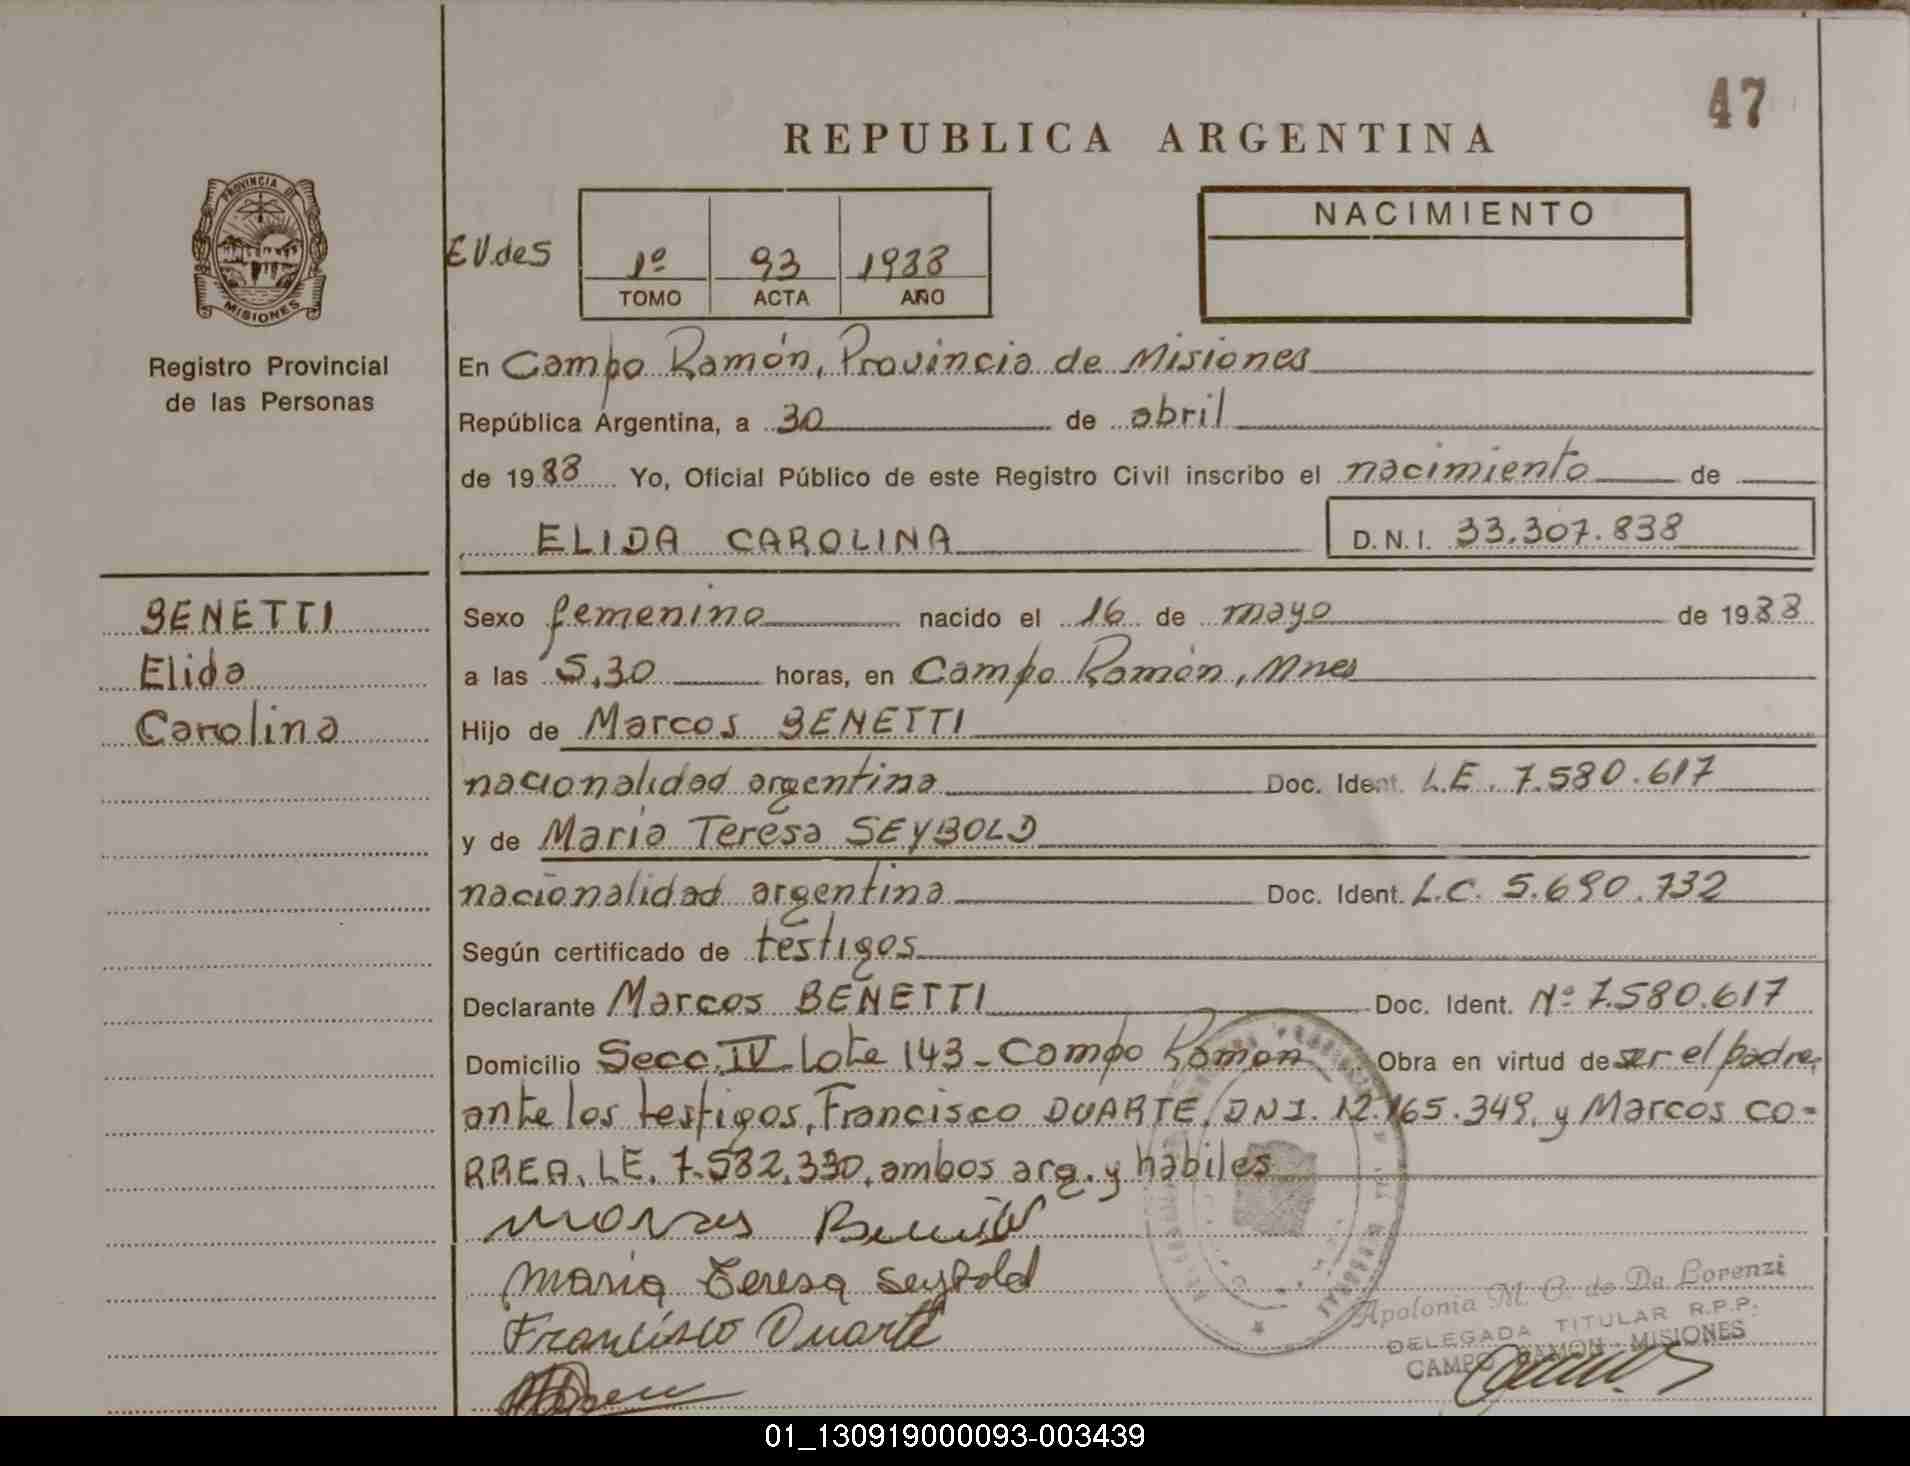 47
REPUBLICA ARGENTINA
PROVINCIA DE
MISIONES
Registro Provincial
de las Personas
E.V.des
1º 93 1988
TOMO ACTA AÑO
NACIMIENTO
En Campo Ramón, Provincia de Misiones
República Argentina, a 30 de abril
de 1988 Yo, Oficial Público de este Registro Civil inscribo el nacimiento de
ELIDA CAROLINA D.N.I. 33.307.838
BENETTI
Elida
Carolina
Sexo femenino nacido el 16 de mayo de 1988
a las 5,30 horas, en Campo Ramón, Mnes
Hijo de Marcos BENETTI
nacionalidad argentina Doc. Ident. L.E. 7.580.617
y de Maria Teresa SEYBOLD
nacionalidad argentina Doc. Ident. L.C. 5.690.732
Según certificado de testigos
Declarante Marcos BENETTI Doc. Ident. Nº 7.580.617
Domicilio Secc. IV Lote 143 - Campo Ramon Obra en virtud de ser el padre,
ante los testigos, Francisco DUARTE, DNI. 12.165.349, y Marcos CO=
RREA, LE. 7.582.330, ambos arg. y hábiles
Marcos Benetti
Maria Teresa Seybold
Francisco Duarte
Apolonia M. C. de Da Lorenzi
DELEGADA TITULAR R.P.P.
CAMPO RAMON - MISIONES
01_130919000093-003439